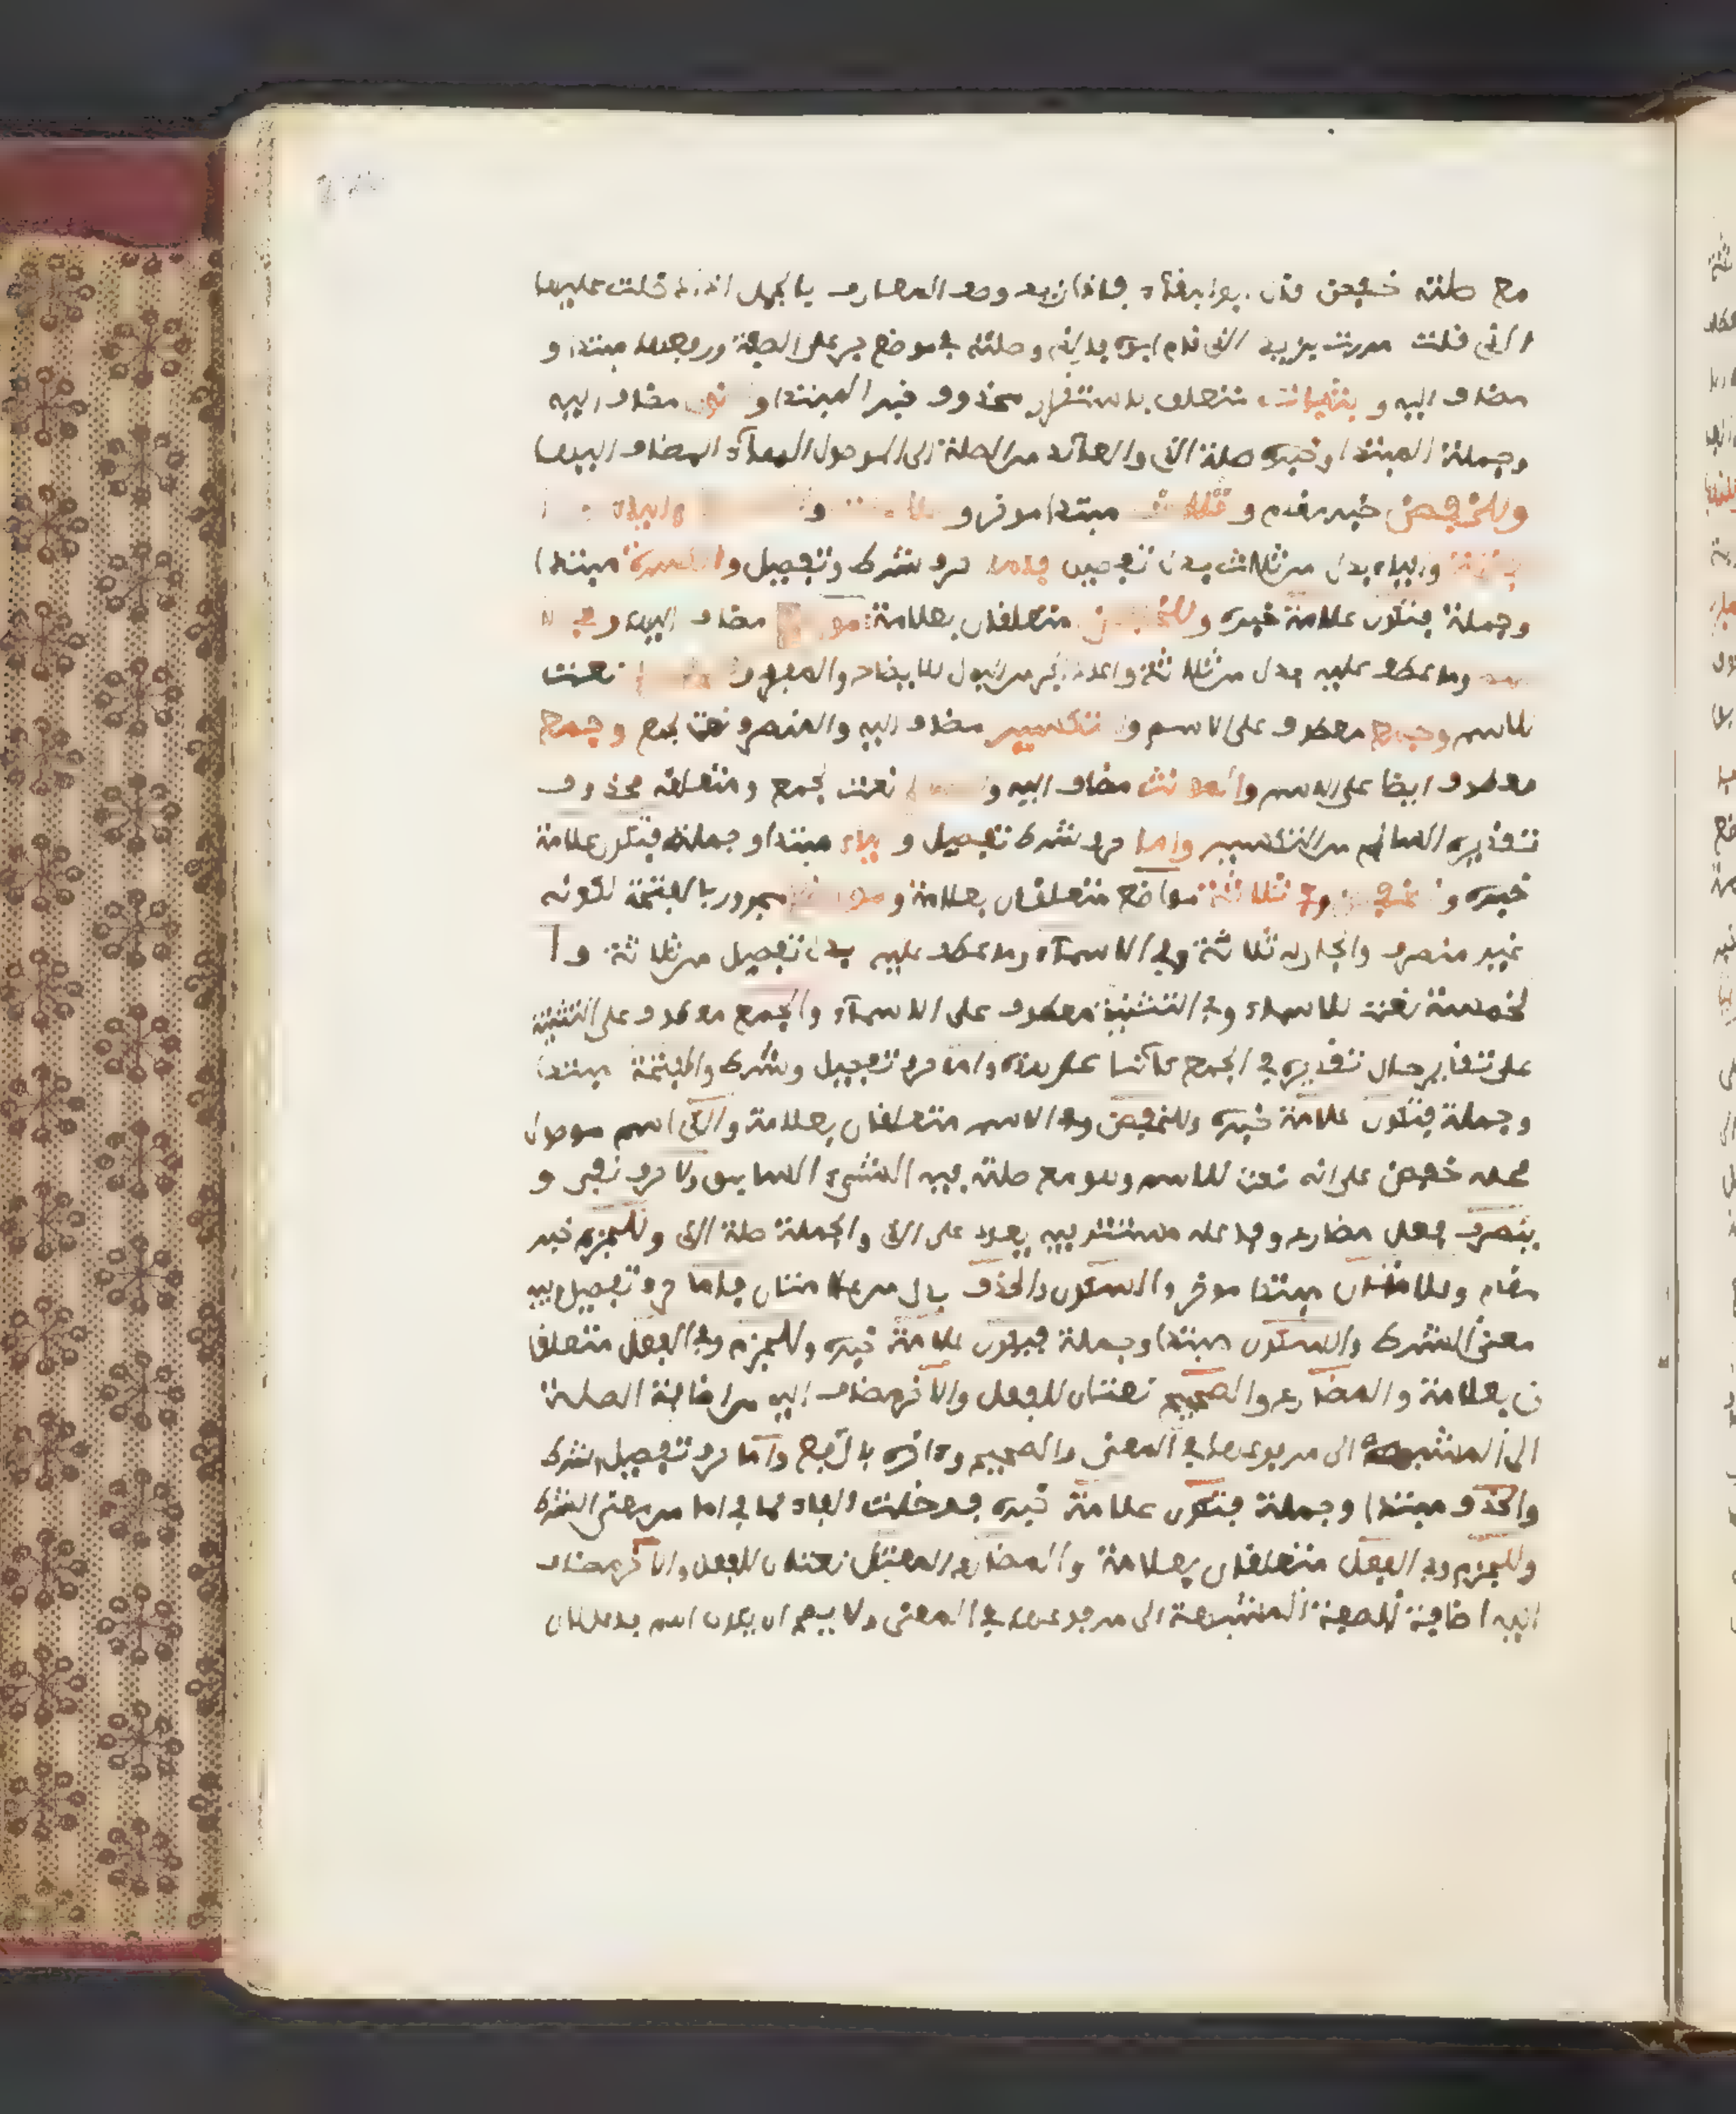 مع صلته خفض قال ابو البقاء فاذا اريد وصف المعارف بالجمل ادخلت عليها
الذي قلت مررت بزيد الذي قام ابوه فالذي وصلته في موضع جر على الصفة ورفعها مبتدا و
مضاف اليه و متعلق باستقرار محذوف خبر المبتدا و مضاف اليه
وجملة المبتدا وخبره صلة الذي والعائد من الصلة الى الموصول الهاء المضاف اليها
وللخفض خبر مقدم و ثلاث مبتدا موخر و
والياء بدل من ثلاث بدل تفصيل فاما حرف شرط وتفصيل والكسرة مبتدا
وجملة فتكون علامة خبره وللخفض متعلقان بعلامة مضاف اليه وفي
وما عطف عليه بدل من ثلاثة واعاد الجر للايضاح والمفرد نعت
للاسم وجمع معطوف على الاسم والتكسير مضاف اليه والمنصرف نعت لجمع وجمع
معطوف ايضا على الاسم والمونث مضاف اليه و نعت لجمع ومتعلقه محذوف
تقديره السالم من التكسير واما حرف شرط تفصيل و الياء مبتدا وجملة فتكون علامة
خبره و للخفض وفي ثلاثة مواضع متعلقان بعلامة و مواضع مجرور بالفتحة لكونه
غير منصرف والجار له ثلاثة وفي الاسماء وما عطف عليه بدل تفصيل من ثلاثة وا
لخمسة نعت للاسماء وفي التثنية معطوف على الاسماء والجمع معطوف على التثنية
على تقدير حال تقديره في الجمع كائنا على هذه واما حرف تفصيل وشرط والفتحة مبتدا
وجملة فتكون علامة خبره وللخفض وفي الاسم متعلقان بعلامة والذي اسم موصول
محله خفض على انه نعت للاسم وهو مع صلته فيه الشيء السابق ولا حرف نفي و
ينصرف فعل مضارع وفاعله مستتر فيه يعود على الذي والجملة صلة الذي وللجزم خبر
مقدم وعلامتان مبتدا موخر والسكون والحذف بدل من علامتان فاما حرف تفصيل فيه
معنى الشرط والسكون مبتدا وجملة فيكون علامة خبره وللجزم وفي الفعل متعلقا
ن بعلامة والمضارع والصحيح نعتان للفعل والاخر مضاف اليه من اضافة الصفة
الى المشبهة الى مرفوعها في المعنى والصحيح واخره بالرفع واما حرف تفصيل شرط
والحذف مبتدا وجملة فتكون علامة خبره فدخلت الفاء لما في اما من معنى الشرط
وللجزم وفي الفعل متعلقان بعلامة والمضارع المعتل نعتان للفعل والاخر مضاف
اليه اضافة للصفة المشبهة الى مرفوعها في المعنى ولا يصح ان يكون اسم فاعل لان